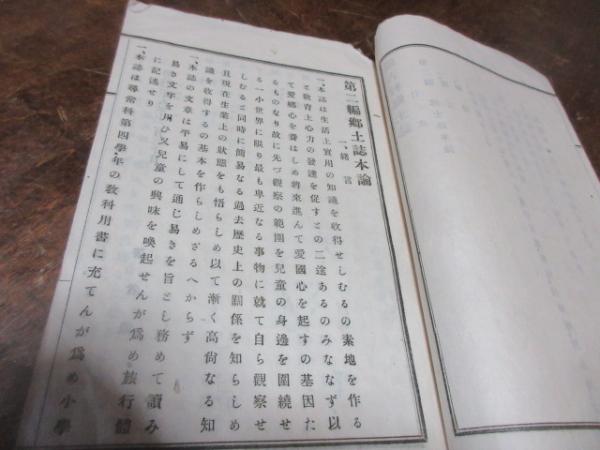 第二編鄕土誌本論
一、緒言
一、本誌は生活上實用の知識を收得せしむるの素地を作る
と敎育上心力の發達を促すとの二途あるのみならず以
て愛鄕心を養はしめ將來進んて愛國心を起すの基因た
るものなり故に先づ觀察の範圍を兒童の身邊を圍繞せ
る一小世界に限り最も卑近なる事物に就て自ら觀察せ
しむると同時に簡易なる過去歷史上の關係を知らしめ
且現在生業上の狀態をも悟らしめ以て漸く高尙なる知
識を收得するの基本を作らしめざるへからず
一、本誌の文章は平易にして通じ易きを旨とし務めて讀み
易き文字を用ひ又兒童の興味を喚起せんが爲め旅行體
に記述せり
一、本誌は尋常科第四學年の敎科用書に充てんが爲め小學